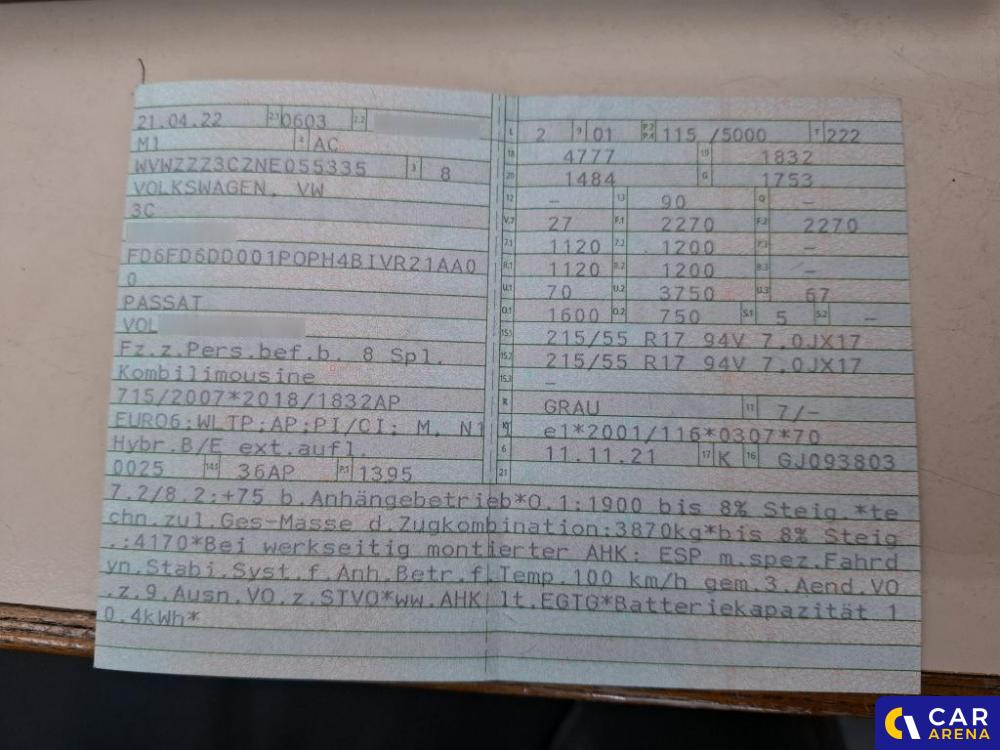 21.04.22 2.1 0603 2.2
M1 4 AC
WVWZZZ3CZNE055335 3 8
VOLKSWAGEN, VW
3C
FD6FD6DD001POPH4BIVR21AA0
0
PASSAT
VOL
Fz.z.Pers.bef.b. 8 Spl.
Kombilimousine
715/2007*2018/1832AP
EURO6;WLTP;AP;PI/CI; M, N1
Hybr.B/E ext.aufl.
0025 14.1 36AP P.1 1395
L 2 9 01 P.2 P.4 115 /5000 T 222
18 4777 19 1832
20 1484 G 1753
12 – 13 90 Q –
V.7 27 F.1 2270 F.2 2270
7.1 1120 7.2 1200 7.3 –
8.1 1120 8.2 1200 8.3 –
U.1 70 U.2 3750 U.3 67
O.1 1600 O.2 750 S.1 5 S.2 –
15.1 215/55 R17 94V 7.0JX17
15.2 215/55 R17 94V 7.0JX17
15.3 –
R GRAU 11 7/–
K e1*2001/116*0307*70
6 11.11.21 17 K 16 GJ093803
21
7.2/8.2:+75 b.Anhängebetrieb*O.1:1900 bis 8% Steig.*te
chn.zul.Ges-Masse d.Zugkombination:3870kg*bis 8% Steig
.:4170*Bei werkseitig montierter AHK: ESP m.spez.Fahrd
yn.Stabi.Syst.f.Anh.Betr.f.Temp.100 km/h gem.3.Aend.VO
.z.9.Ausn.VO.z.STVO*ww.AHK lt.EGTG*Batteriekapazität 1
0.4kWh*
CAR
ARENA